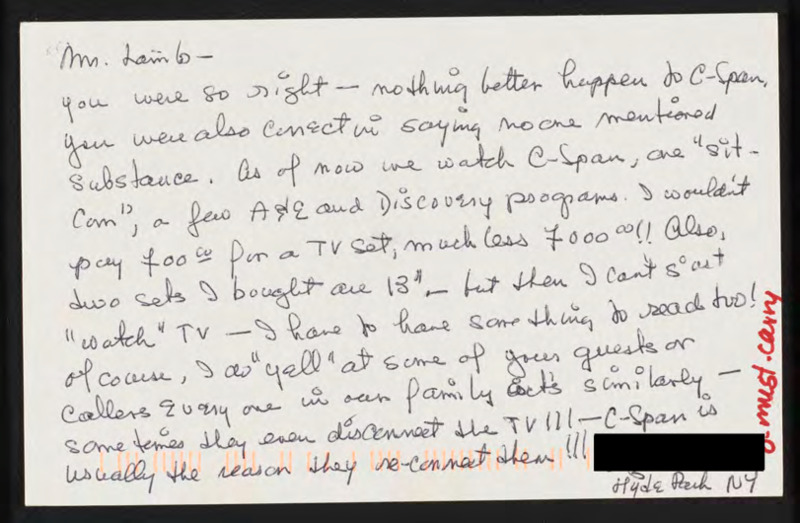 Mr. Lamb —
you were so right — nothing better happen to C-Span.
you were also correct in saying no one mentioned
substance. As of now we watch C-Span, one "sit-
com", a few A&E and Discovery programs. I wouldn't
pay 700 00 for a TV set, much less 7000 00!! Also,
two sets I bought are 13" — but then I can't just
"watch" TV — I have to have something to read too!
of course, I do "yell" at some of your guests or
callers Every one in our family acts similarly —
sometimes they even disconnect the TV!!! — C-Span is
usually the reason they re-connect them!!!
Hyde Park NY
must-carry